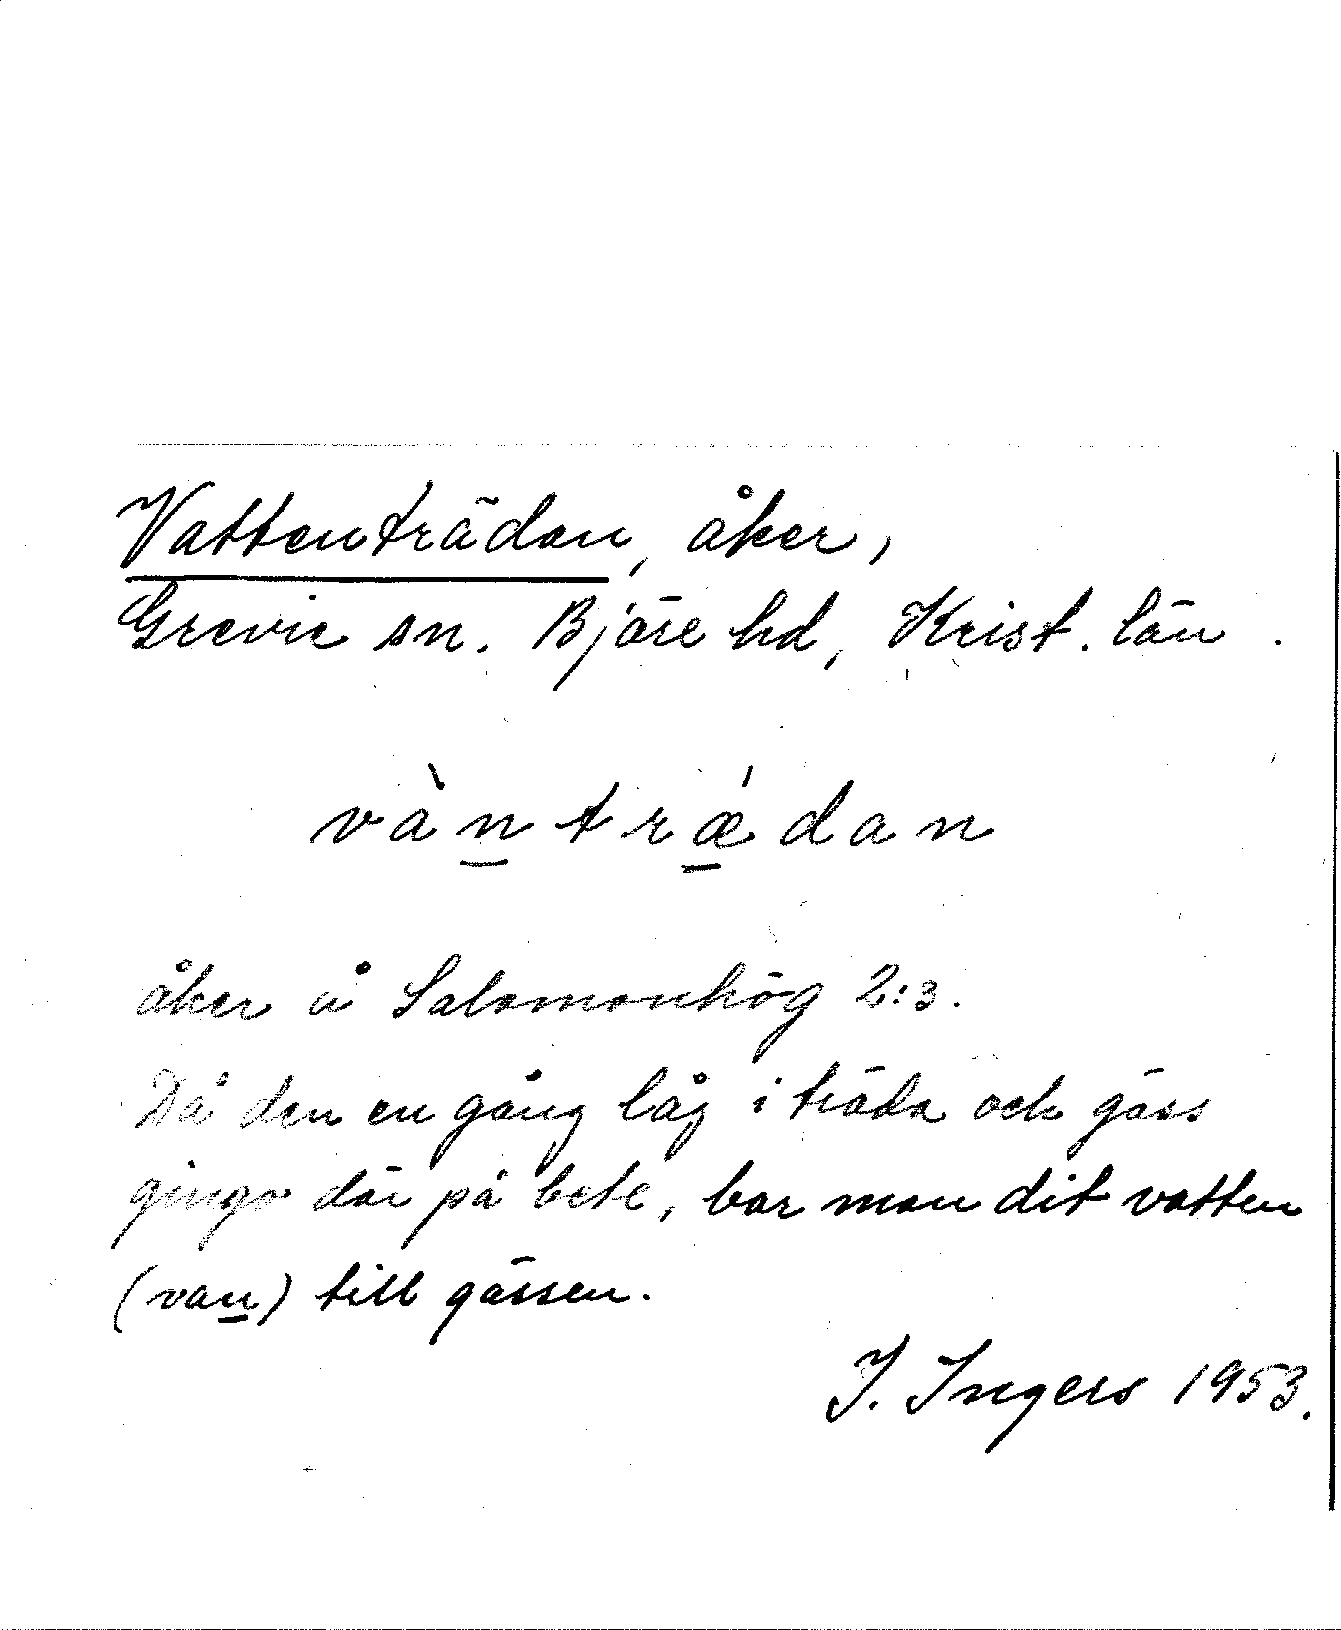 Vattenträdan, åker,
Grevie sn. Bjäre hd, Krist. län.
vàn̲trǽ̲dan
åker å Salomonhög 2:3.
Då den en gång låg i träda och gäss
gingo där på bete, bar man dit vatten
(van̲) till gässen.
I. Ingers 1953.